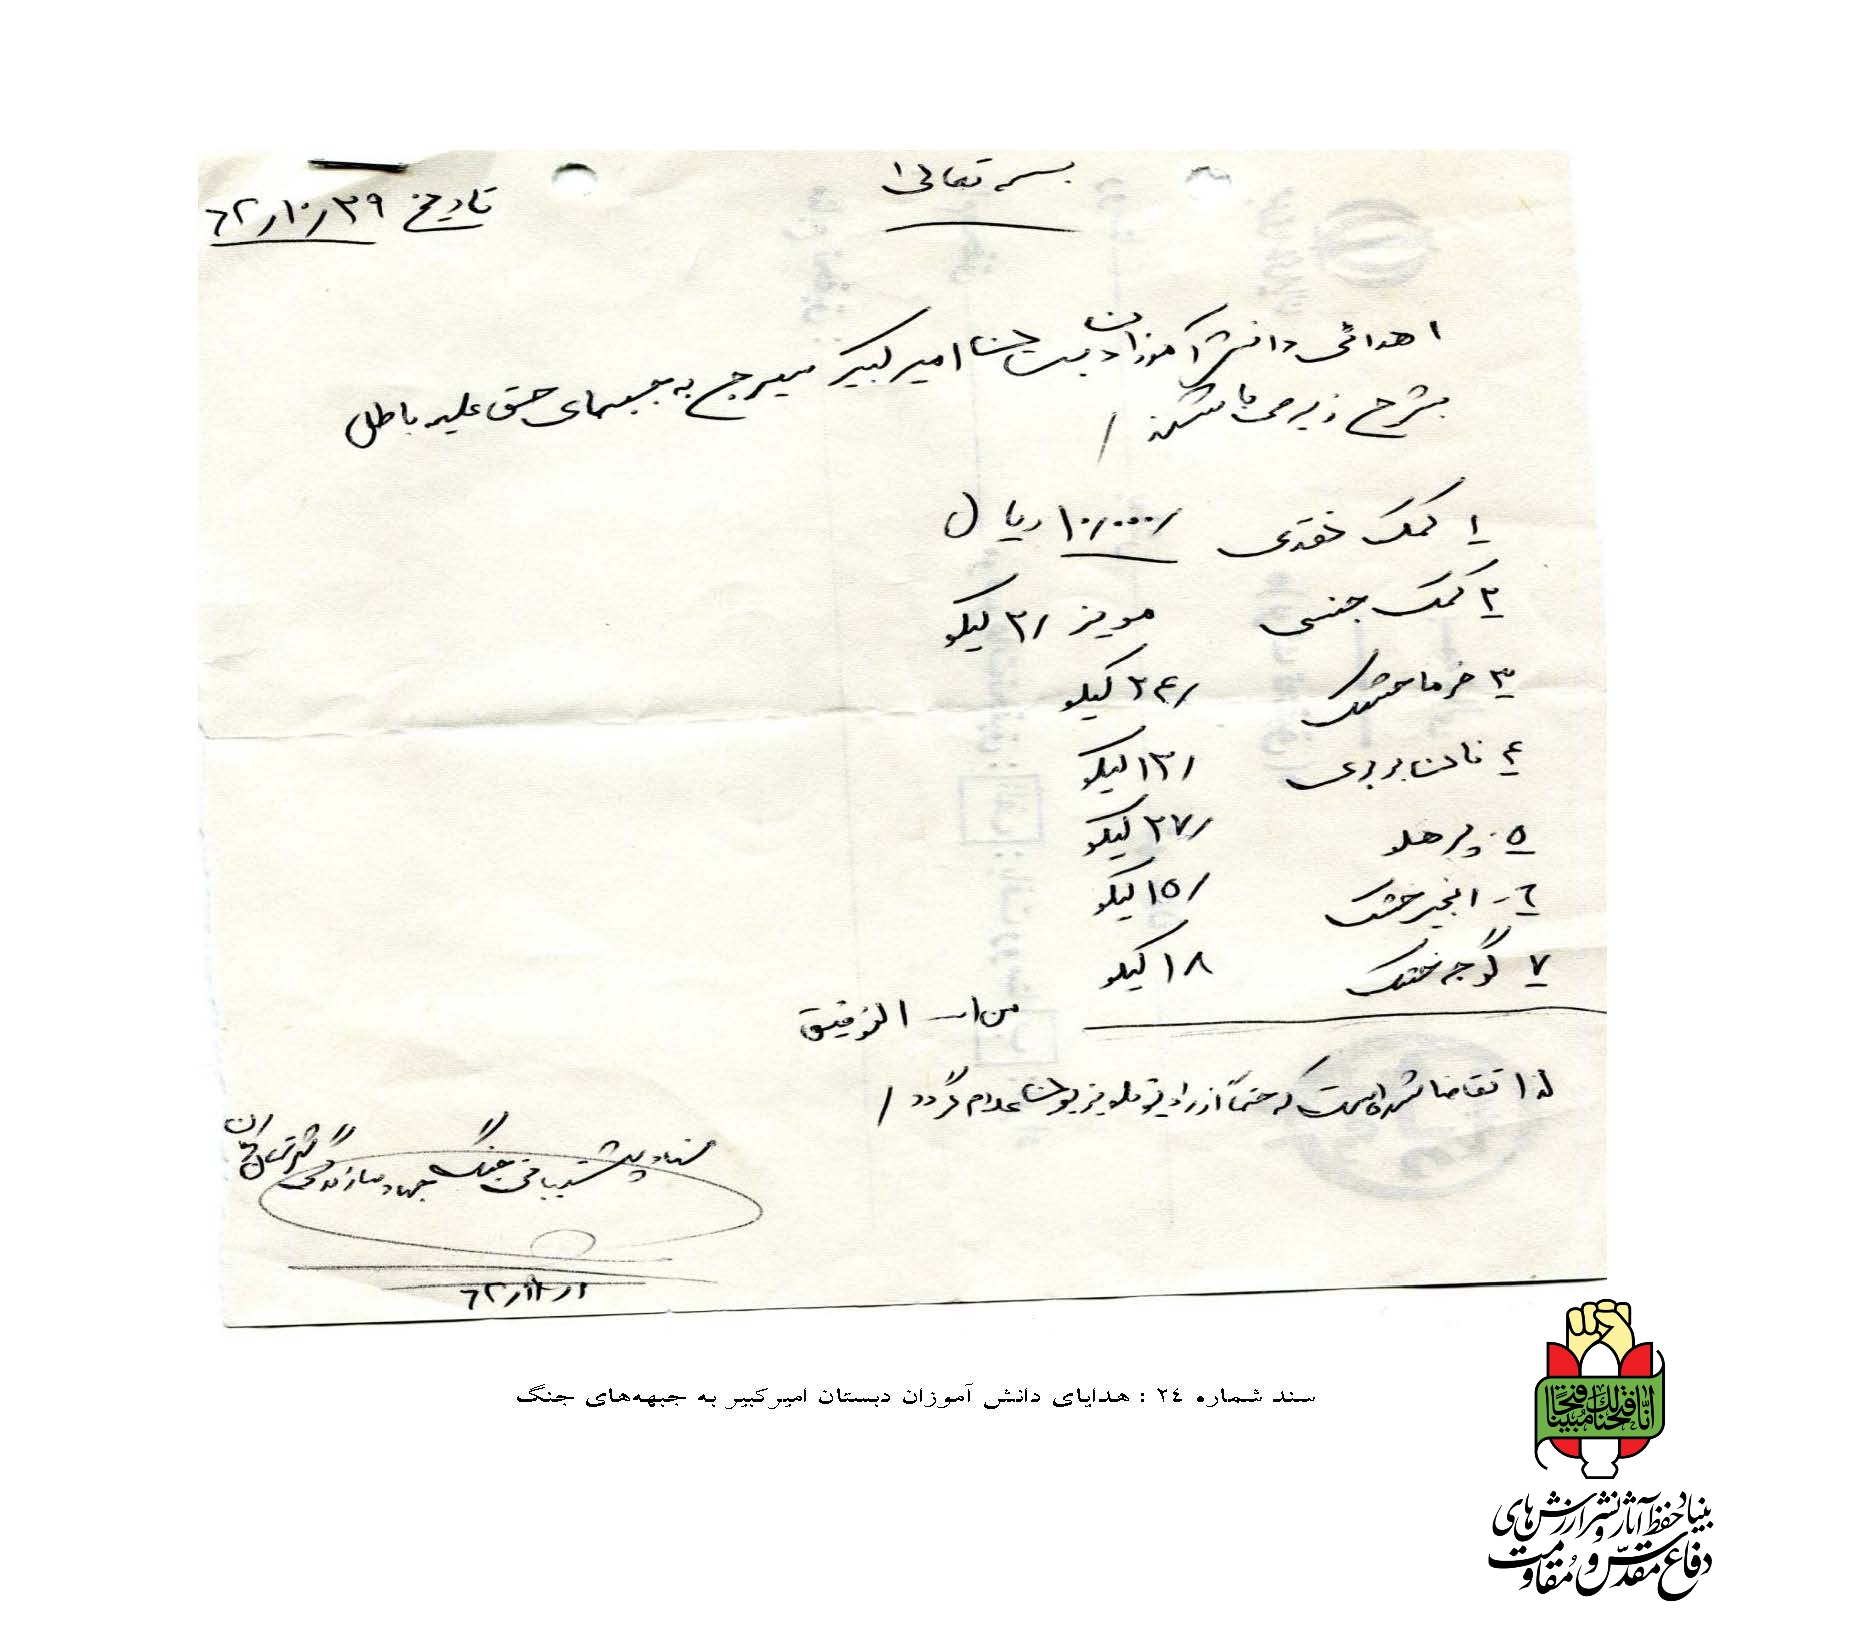 بسمه تعالی
تاریخ ۶۲/۱۰/۲۹
اهدائی دانش آموزان دبستان امیرکبیر سیرج به جبههای حق علیه باطل
بشرح زیر می باشند /
۱ کمک نقدی ۱۰/۰۰۰/ ریال
۲ کمک جنسی مویز ۲/ کیلو
۳ خرما خشک ۲۴/ کیلو
۴ نان بربری ۱۳/ کیلو
۵- پرهلو ۲۷/ کیلو
۶- انجیر خشک ۱۵/ کیلو
۷ گوجه خشک ۱۸ کیلو
من ا... التوفیق
لذا تقاضا شده است که حتماً از رادیو تلویزیون اعلام گردد /
ستاد پشتیبانی جنگ جهاد سازندگی
سند شماره ۲۴ : هدایای دانش آموزان دبستان امیرکبیر به جبهه‌های جنگ
انّا فتحنا لک فتحاً مبینا
بنیاد حفظ آثار و نشر ارزش‌های
دفاع مقدّس و مُقاومت